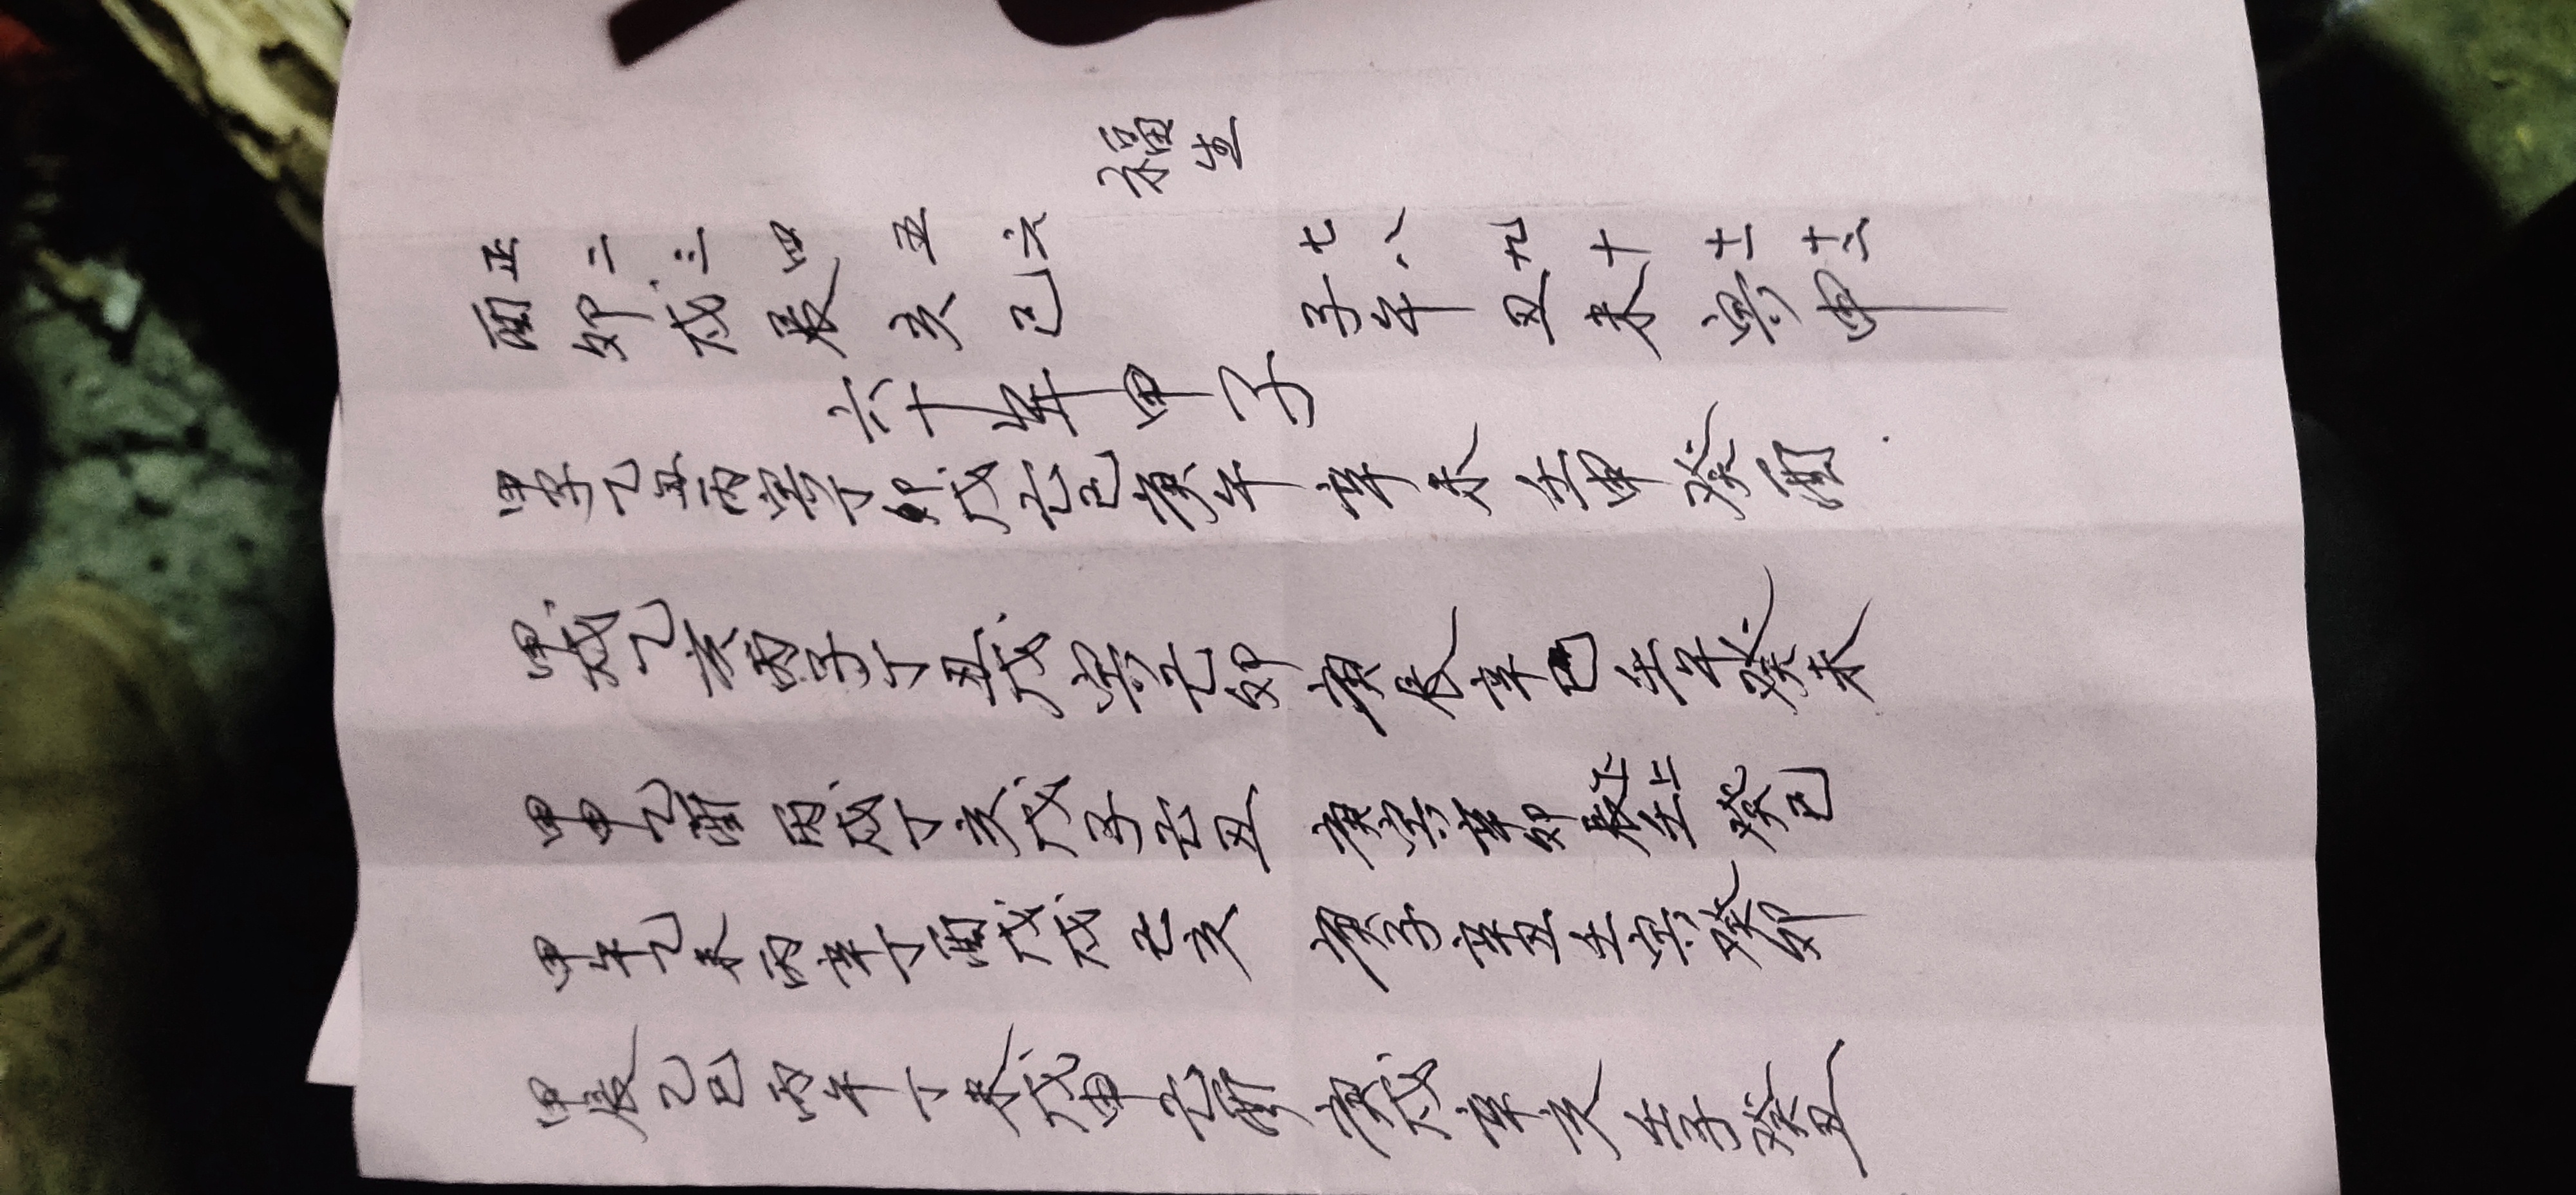 正 二 三 四 五 六 七 八 九 十 十一 十二
酉 卯 戌 辰 亥 巳 子 午 丑 未 寅 申
六十年甲子
甲子乙丑丙寅丁卯戊辰己巳庚午辛未壬申癸酉
甲戌乙亥丙子丁丑戊寅己卯庚辰辛巳壬午癸未
甲申乙酉丙戌丁亥戊子己丑庚寅辛卯壬辰癸巳
甲午乙未丙申丁酉戊戌己亥庚子辛丑壬寅癸卯
甲辰乙巳丙午丁未戊申己酉庚戌辛亥壬子癸丑